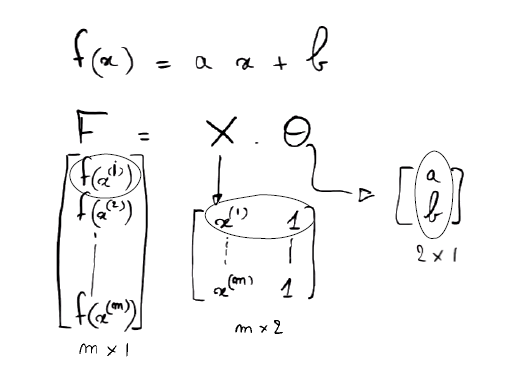 f(x) = a x + b
F = X . Θ
f(x⁽¹⁾)
f(x⁽²⁾)
f(x⁽ᵐ⁾)
m × 1
x⁽¹⁾ 1
x⁽ᵐ⁾ 1
m × 2
a
b
2 × 1